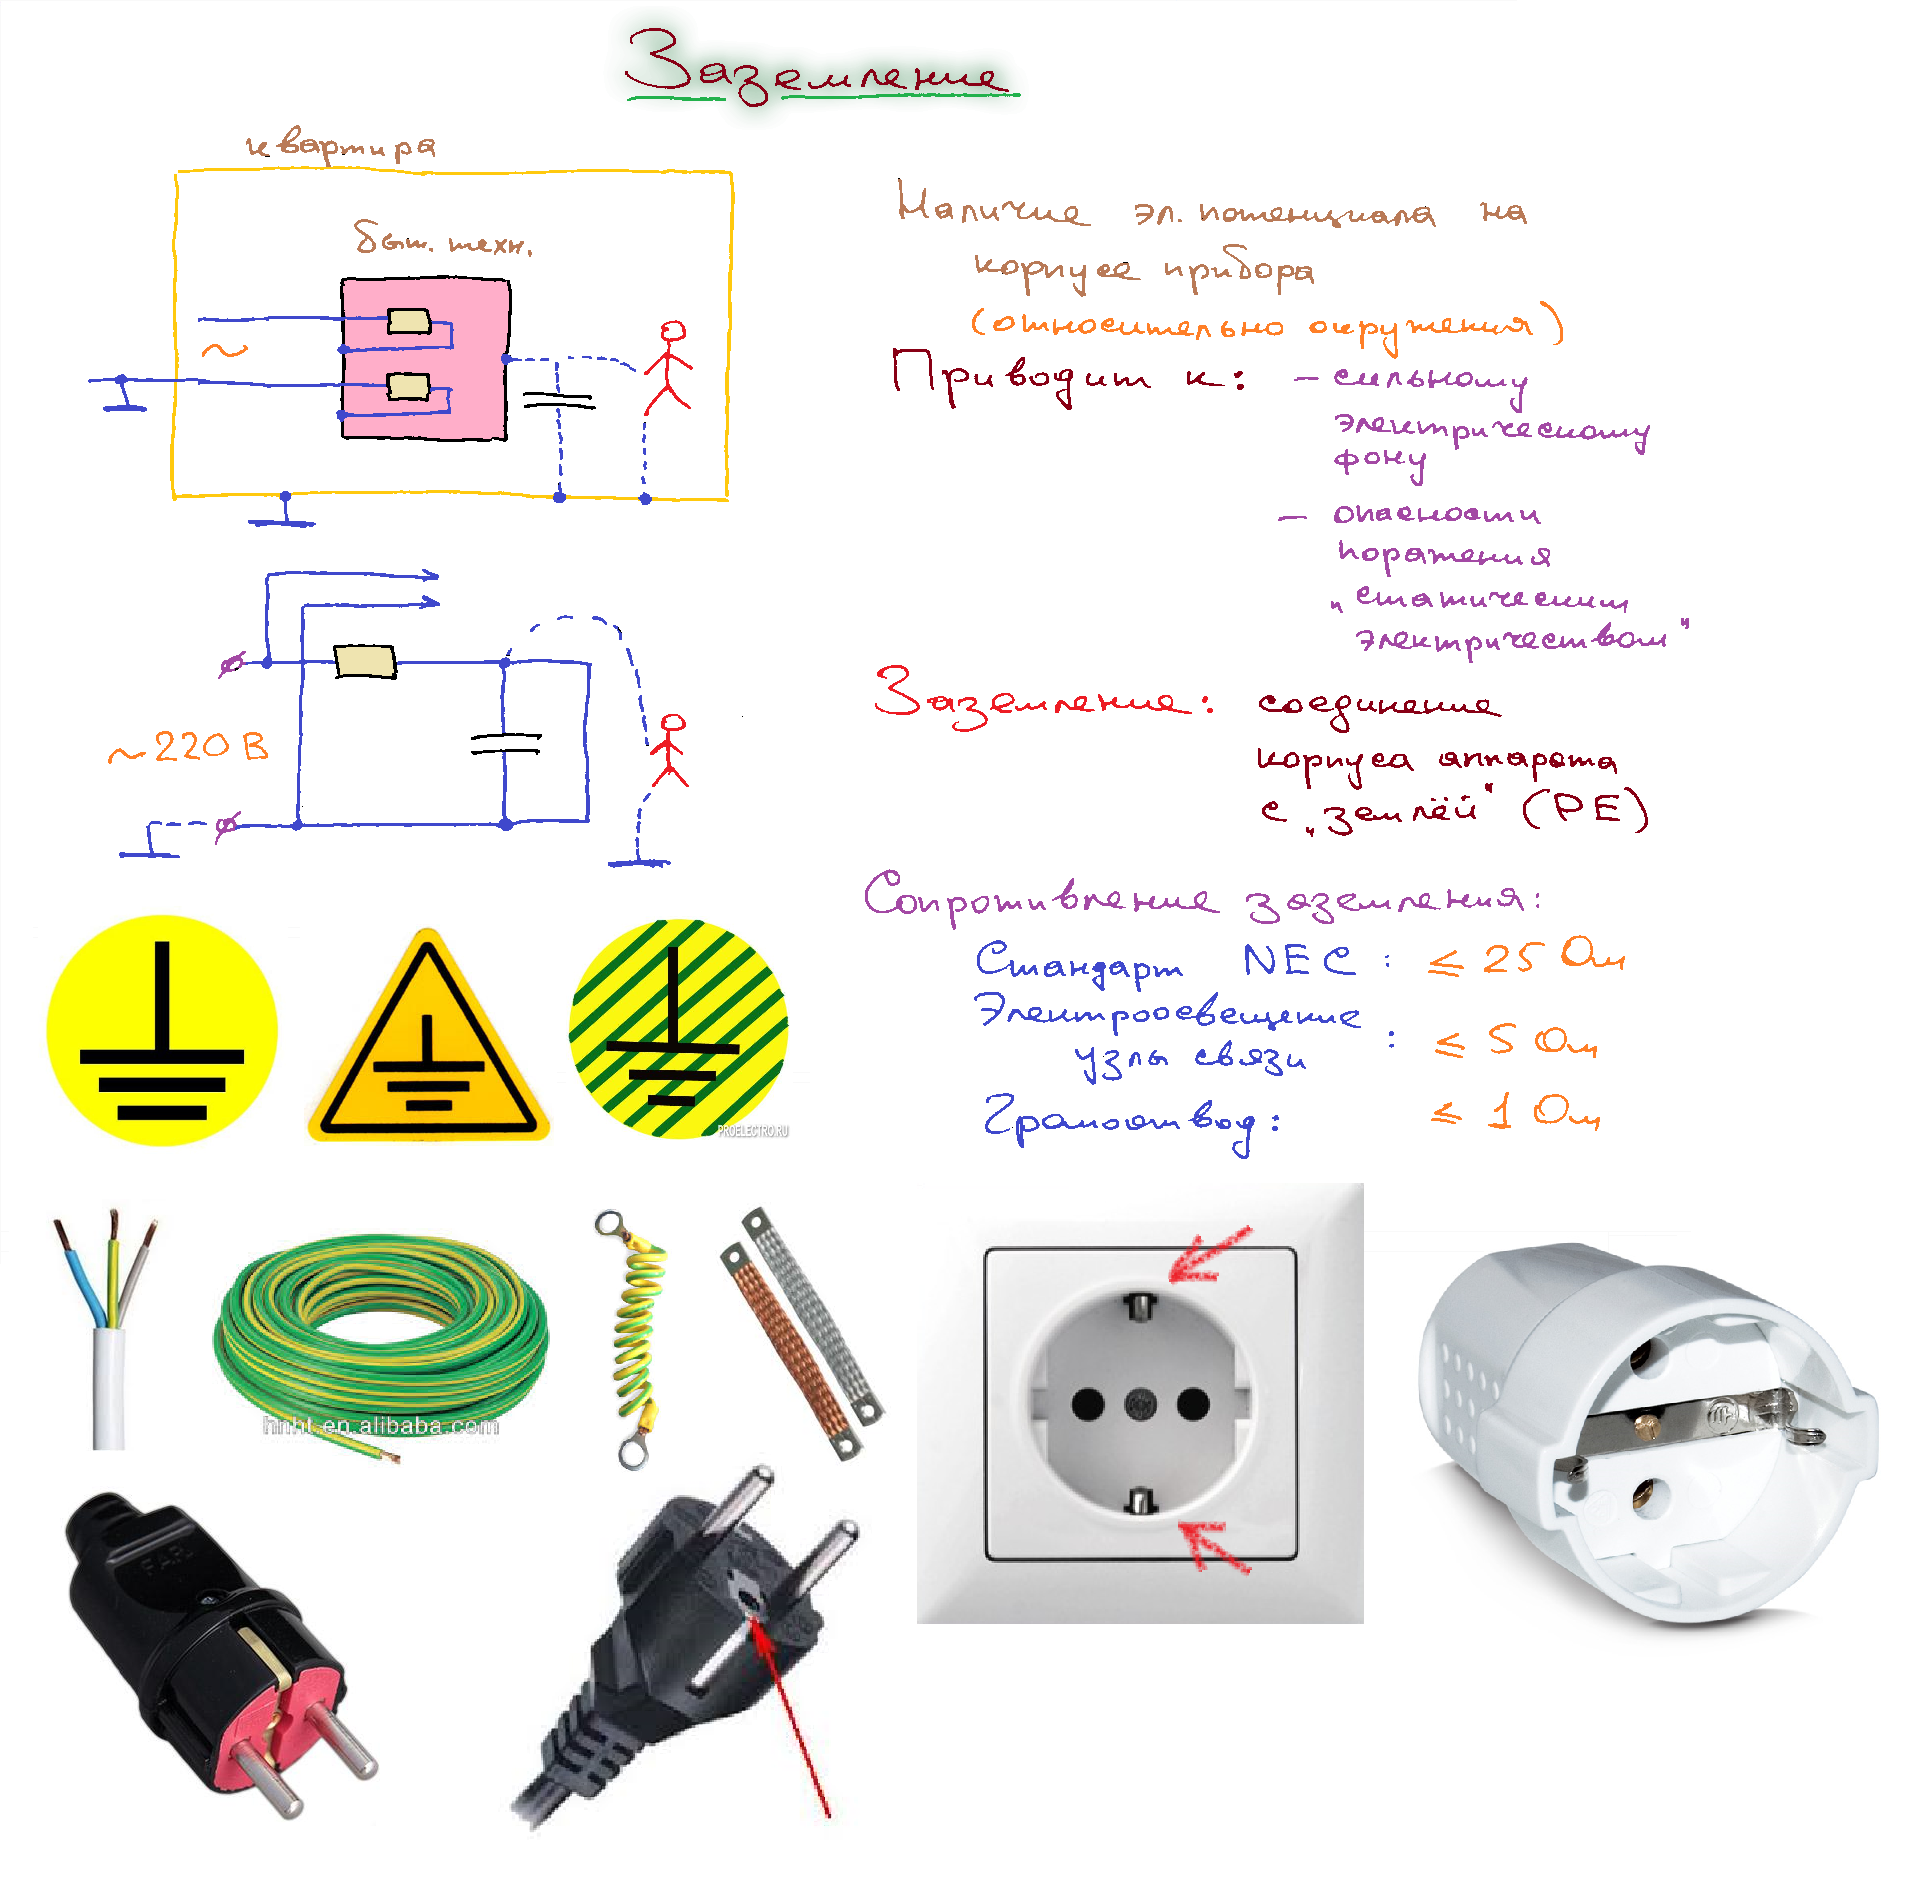 Заземление
квартира
быт. техн.
~
Наличие эл. потенциала на
корпусе прибора
(относительно окружения)
Приводит к: – сильному
электрическому
фону
– опасности
поражения
„статическим
электричеством"
~220 В
Заземление: соединение
корпуса аппарата
с „землёй" (PE)
Сопротивление заземления:
Стандарт NEC : ≤ 25 Ом
Электроосвещение
узлы связи : ≤ 5 Ом
Громоотвод: ≤ 1 Ом
PROELECTRO.RU
hnht.en.alibaba.com